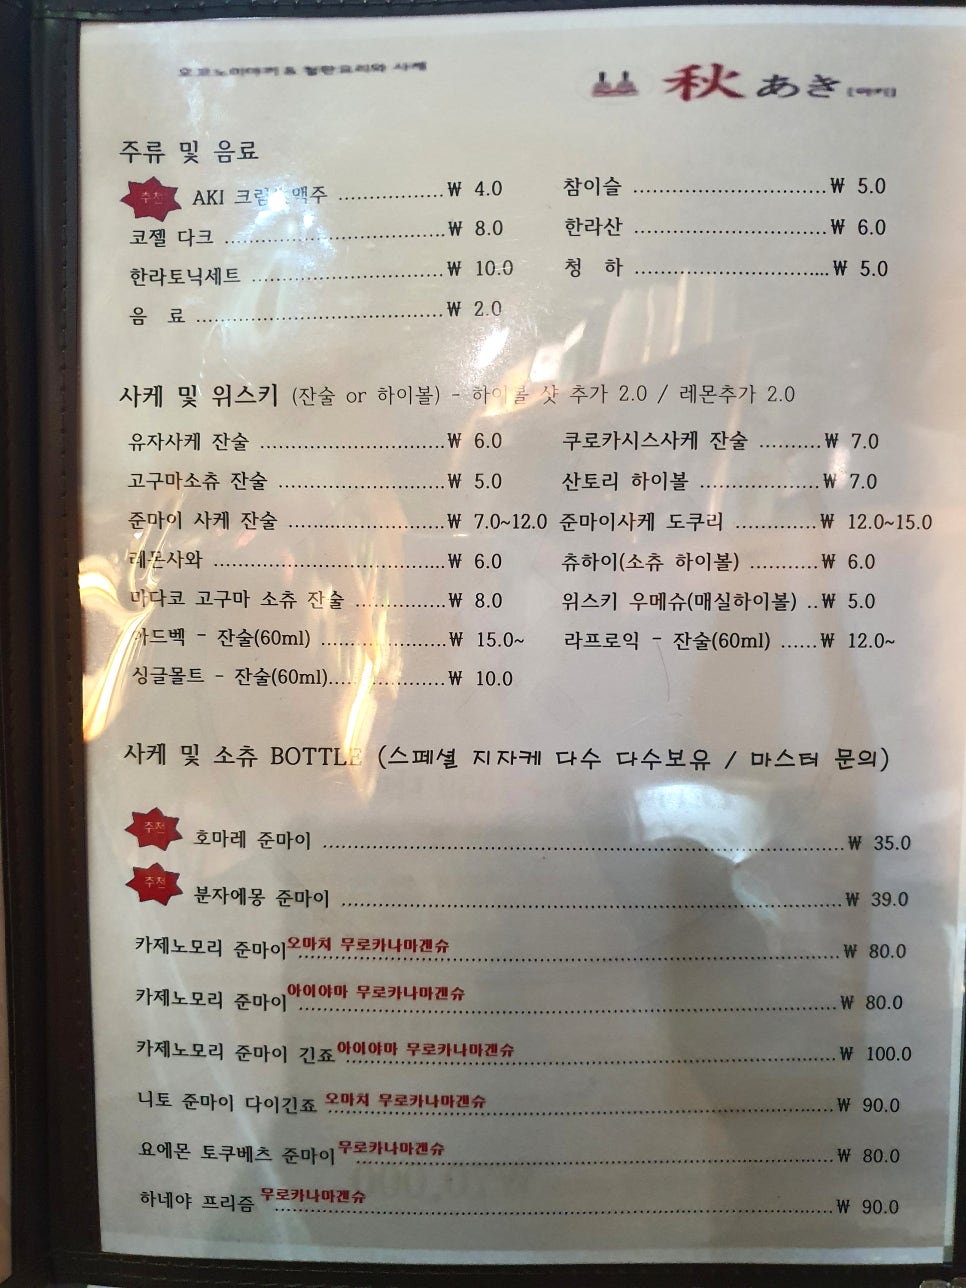 오코노미야키 & 철판요리와 사케
秋 あき [아키]
주류 및 음료
추천 AKI 크림 맥주 ₩ 4.0
코젤 다크 ₩ 8.0
한라토닉세트 ₩ 10.0
음 료 ₩ 2.0
참이슬 ₩ 5.0
한라산 ₩ 6.0
청 하 ₩ 5.0
사케 및 위스키 (잔술 or 하이볼) - 하이볼 샷 추가 2.0 / 레몬추가 2.0
유자사케 잔술 ₩ 6.0
고구마소츄 잔술 ₩ 5.0
준마이 사케 잔술 ₩ 7.0~12.0
레몬사와 ₩ 6.0
마다코 고구마 소츄 잔술 ₩ 8.0
아드벡 - 잔술(60ml) ₩ 15.0~
싱글몰트 - 잔술(60ml) ₩ 10.0
쿠로카시스사케 잔술 ₩ 7.0
산토리 하이볼 ₩ 7.0
준마이사케 도쿠리 ₩ 12.0~15.0
츄하이(소츄 하이볼) ₩ 6.0
위스키 우메슈(매실하이볼) ₩ 5.0
라프로익 - 잔술(60ml) ₩ 12.0~
사케 및 소츄 BOTTLE (스페셜 지자케 다수 다수보유 / 마스터 문의)
추천 호마레 준마이 ₩ 35.0
추천 분자에몽 준마이 ₩ 39.0
카제노모리 준마이 오마치 무로카나마겐슈 ₩ 80.0
카제노모리 준마이 아이야마 무로카나마겐슈 ₩ 80.0
카제노모리 준마이 긴죠 아이야마 무로카나마겐슈 ₩ 100.0
니토 준마이 다이긴죠 오마치 무로카나마겐슈 ₩ 90.0
요에몬 토쿠베츠 준마이 무로카나마겐슈 ₩ 80.0
하네야 프리즘 무로카나마겐슈 ₩ 90.0